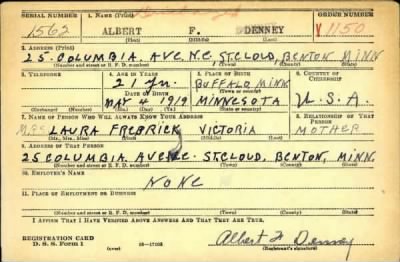 SERIAL NUMBER 1. NAME (Print) ORDER NUMBER
1562 ALBERT F. DENNEY V1150
(First) (Middle) (Last)
2. ADDRESS (Print)
25 COLUMBIA AVE N.E. ST. CLOUD, BENTON MINN
(Number and street or R. F. D. number) (Town) (County) (State)
3. TELEPHONE 4. AGE IN YEARS 5. PLACE OF BIRTH 6. COUNTRY OF CITIZENSHIP
21 BUFFALO MINN
DATE OF BIRTH (Town or county)
MAY 4 1919 MINNESOTA U.S.A.
(Exchange) (Number) (Mo.) (Day) (Yr.) (State or country)
7. NAME OF PERSON WHO WILL ALWAYS KNOW YOUR ADDRESS 8. RELATIONSHIP OF THAT PERSON
MRS LAURA FREDRICK VICTORIA MOTHER
(Mr., Mrs., Miss) (First) (Middle) (Last)
9. ADDRESS OF THAT PERSON
25 COLUMBIA AVE N.E. ST. CLOUD, BENTON, MINN.
(Number and street or R. F. D. number) (Town) (County) (State)
10. EMPLOYER'S NAME
NONE
11. PLACE OF EMPLOYMENT OR BUSINESS
(Number and street or R. F. D. number) (Town) (County) (State)
I AFFIRM THAT I HAVE VERIFIED ABOVE ANSWERS AND THAT THEY ARE TRUE.
REGISTRATION CARD
D. S. S. FORM 1 (over) Albert F Denney
(Registrant's signature)